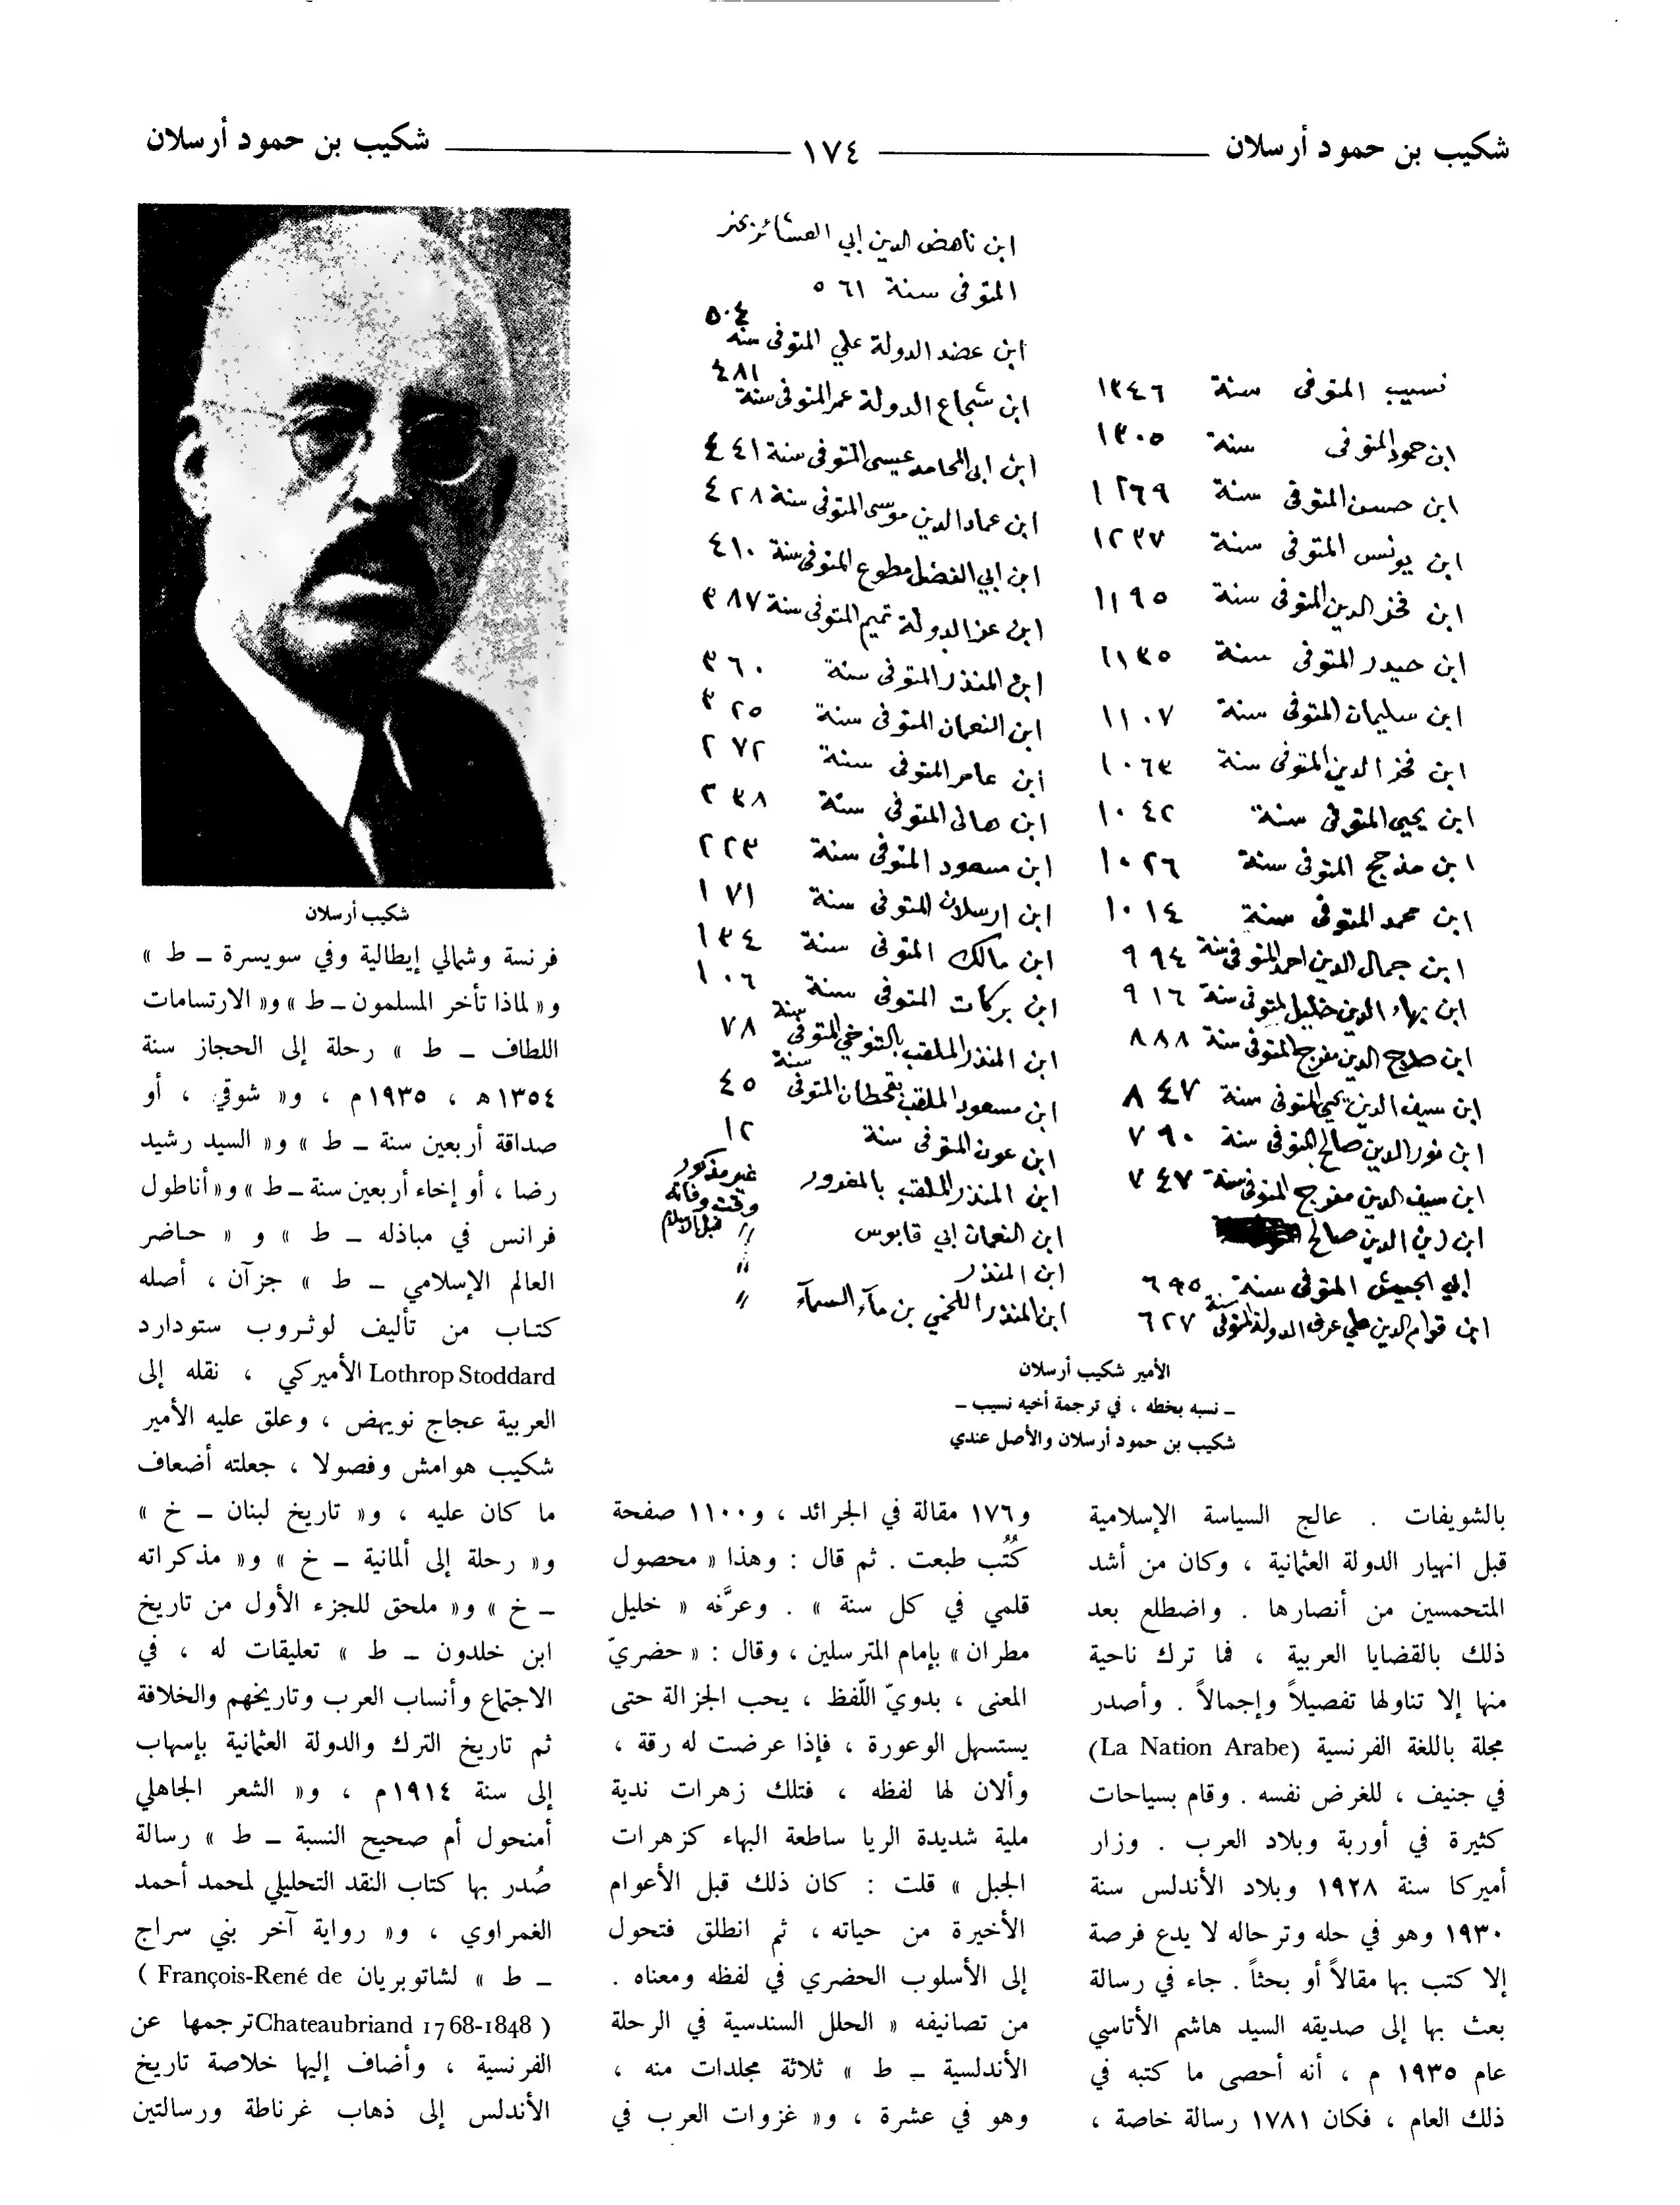 شكيب بن حمود أرسلان
١٧٤
شكيب بن حمود أرسلان
نسيب المتوفى سنة ١٣٤٦
ابن حمود المتوفى سنة ١٣٠٥
ابن حسن المتوفى سنة ١٢٦٩
ابن يونس المتوفى سنة ١٢٣٧
ابن فخر الدين المتوفى سنة ١١٩٥
ابن حيدر المتوفى سنة ١١٣٥
ابن سليمان المتوفى سنة ١١٠٧
ابن فخر الدين المتوفى سنة ١٠٦٣
ابن يحيى المتوفى سنة ١٠٤٢
ابن مذحج المتوفى سنة ١٠٢٦
ابن محمد المتوفى سنة ١٠١٤
ابن جمال الدين احمد المتوفى سنة ٩٩٤
ابن بهاء الدين خليل المتوفى سنة ٩١٦
ابن صلاح الدين مفرج المتوفى سنة ٨٨٨
ابن سيف الدين يحيى المتوفى سنة ٨٤٧
ابن نور الدين صالح المتوفى سنة ٧٩٠
ابن سيف الدين مفرج المتوفى سنة ٧٤٧
ابن زين الدين صالح
ابي الجيش المتوفى سنة ٦٩٥
ابن قوام الدين علي عرف الدولة المتوفى سنة ٦٢٧
ابن ناهض الدين ابي العشائر بحتر
المتوفى سنة ٥٦١
ابن عضد الدولة علي المتوفى سنة ٥٠٤
ابن شجاع الدولة عمر المتوفى سنة ٤٨١
ابن ابي المحامد عيسى المتوفى سنة ٤٤١
ابن عماد الدين موسى المتوفى سنة ٤٢٨
ابن ابي الفضل مطوع المتوفى سنة ٤١٠
ابن عز الدولة تميم المتوفى سنة ٣٨٧
ابن المنذر المتوفى سنة ٣٦٠
ابن النعمان المتوفى سنة ٣٢٥
ابن عامر المتوفى سنة ٢٧٢
ابن هانى المتوفى سنة ٢٣٨
ابن مسعود المتوفى سنة ٢٢٣
ابن ارسلان المتوفى سنة ١٧١
ابن مالك المتوفى سنة ١٣٤
ابن بركات المتوفى سنة ١٠٦
ابن المنذر الملقب بالتنوخي المتوفى سنة ٧٨
ابن مسعود الملقب بقحطان المتوفى سنة ٤٥
ابن عون المتوفى سنة ١٢
ابن المنذر الملقب بالمغرور غير مذكور وقت وفاته
ابن النعمان ابي قابوس " قبل الاسلام
ابن المنذر "
ابن المنذر اللخمي بن مآء السمآء "
الأمير شكيب أرسلان
ــ نسبه بخطه ، في ترجمة أخيه نسيب ــ
شكيب بن حمود أرسلان والأصل عندي
بالشويفات . عالج السياسة الإسلامية
قبل انهيار الدولة العثمانية ، وكان من أشد
المتحمسين من أنصارها . واضطلع بعد
ذلك بالقضايا العربية ، فما ترك ناحية
منها إلا تناولها تفصيلاً وإجمالاً . وأصدر
مجلة باللغة الفرنسية (La Nation Arabe)
في جنيف ، للغرض نفسه . وقام بسياحات
كثيرة في أوربة وبلاد العرب . وزار
أميركا سنة ١٩٢٨ وبلاد الأندلس سنة
١٩٣٠ وهو في حله وترحاله لا يدع فرصة
إلا كتب بها مقالاً أو بحثاً . جاء في رسالة
بعث بها إلى صديقه السيد هاشم الأتاسي
عام ١٩٣٥ م ، أنه أحصى ما كتبه في
ذلك العام ، فكان ١٧٨١ رسالة خاصة ،
و١٧٦ مقالة في الجرائد ، و١١٠٠ صفحة
كُتُب طبعت . ثم قال : وهذا « محصول
قلمي في كل سنة » . وعرَّفه « خليل
مطران » بإمام المترسلين ، وقال : « حضريّ
المعنى ، بدويّ اللّفظ ، يحب الجزالة حتى
يستسهل الوعورة ، فإذا عرضت له رقة ،
وألان لها لفظه ، فتلك زهرات ندية
ملية شديدة الريا ساطعة البهاء كزهرات
الجبل » قلت : كان ذلك قبل الأعوام
الأخيرة من حياته ، ثم انطلق فتحول
إلى الأسلوب الحضري في لفظه ومعناه .
من تصانيفه « الحلل السندسية في الرحلة
الأندلسية ــ ط » ثلاثة مجلدات منه ،
وهو في عشرة ، و« غزوات العرب في
شكيب أرسلان
فرنسة وشمالي إيطالية وفي سويسرة ــ ط »
و« لماذا تأخر المسلمون ــ ط » و« الارتسامات
اللطاف ــ ط » رحلة إلى الحجاز سنة
١٣٥٤هـ ، ١٩٣٥م ، و« شوقي ، أو
صداقة أربعين سنة ــ ط » و« السيد رشيد
رضا ، أو إخاء أربعين سنة ــ ط » و« أناطول
فرانس في مباذله ــ ط » و « حاضر
العالم الإسلامي ــ ط » جزآن ، أصله
كتاب من تأليف لوثروب ستودارد
Lothrop Stoddard الأميركي ، نقله إلى
العربية عجاج نويهض ، وعلق عليه الأمير
شكيب هوامش وفصولا ، جعلته أضعاف
ما كان عليه ، و« تاريخ لبنان ــ خ »
و« رحلة إلى ألمانية ــ خ » و« مذكراته
ــ خ » و« ملحق للجزء الأول من تاريخ
ابن خلدون ــ ط » تعليقات له ، في
الاجتماع وأنساب العرب وتاريخهم والخلافة
ثم تاريخ الترك والدولة العثمانية بإسهاب
إلى سنة ١٩١٤م ، و« الشعر الجاهلي
أمنحول أم صحيح النسبة ــ ط » رسالة
صُدر بها كتاب النقد التحليلي لمحمد أحمد
الغمراوي ، و« رواية آخر بني سراج
ــ ط » لشاتوبريان François-René de )
( Chateaubriand 1768-1848 ترجمها عن
الفرنسية ، وأضاف إليها خلاصة تاريخ
الأندلس إلى ذهاب غرناطة ورسالتين